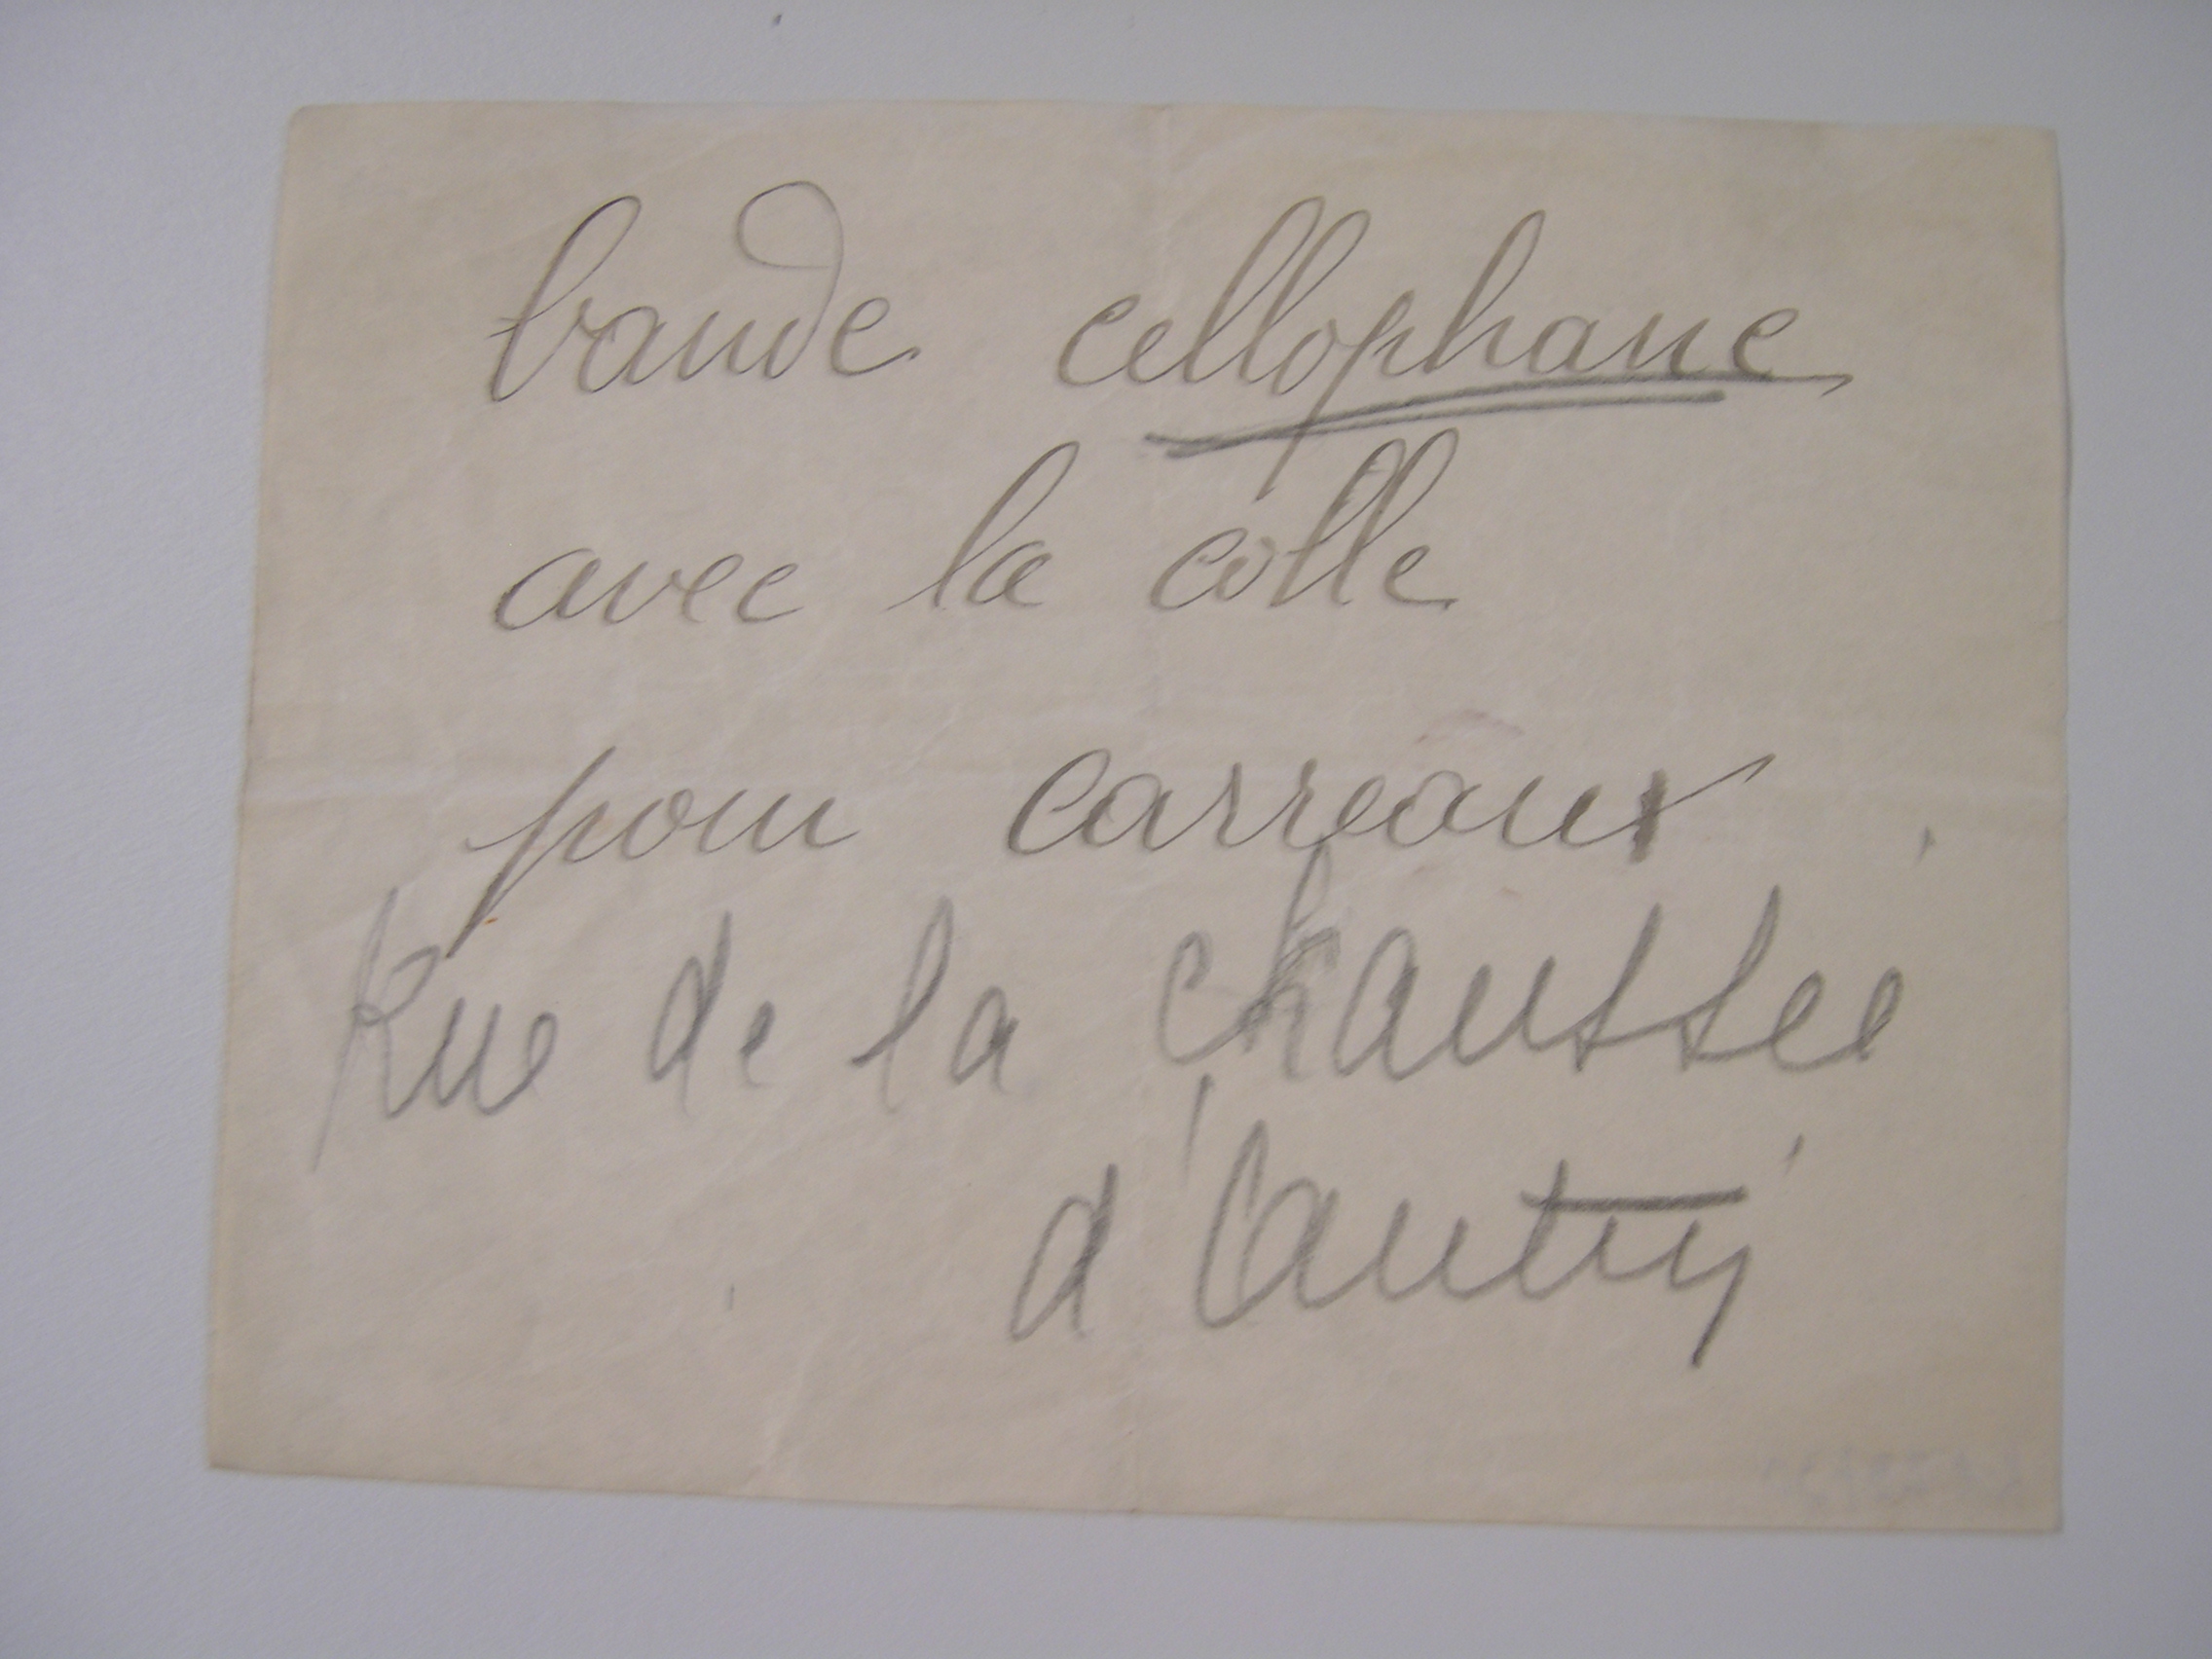 bande cellophane
avec la colle
pour carreaux
Rue de la chaussée
d'